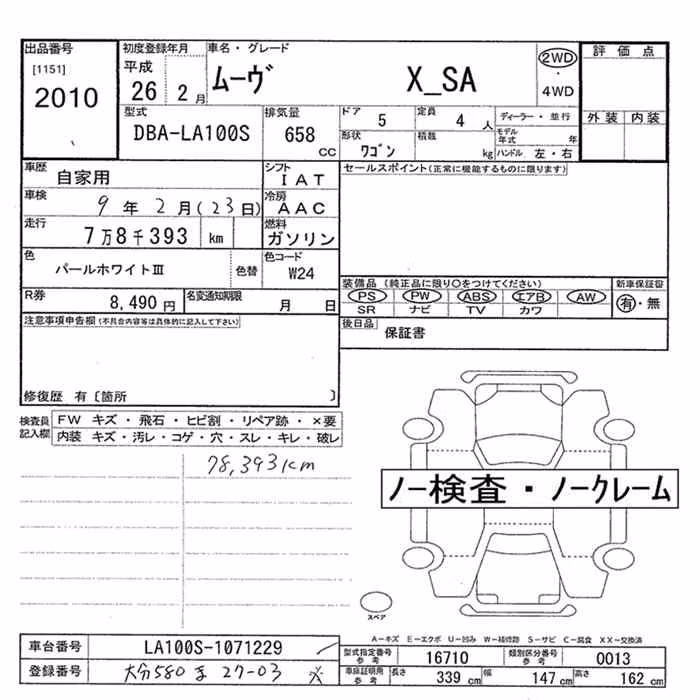 出品番号 初度登録年月 車名・グレード 2WD・4WD 評価点
[1151] 2010
平成 26 2月 ムーヴ X_SA
型式 DBA-LA100S 排気量 658 CC ドア 5 定員 4 人 ディーラー・並行 外装 内装
形状 ワゴン 積載 kg モデル年式 年 ハンドル 左・右
車歴 自家用 シフト IAT セールスポイント(正常に機能するものに限ります)
車検 9年2月(23日) 冷房 AAC
走行 7万8千393 km 燃料 ガソリン
色 パールホワイトIII 色替 色コード W24
装備品(純正品に限り〇をつけてください) 新車保証書
R券 8,490円 名変通知期限 月 日 PS PW ABS エアB AW 有・無
SR ナビ TV カワ
注意事項申告欄(不具合内容等は具体的に記入して下さい) 後日品 保証書
修復歴 有〔箇所 〕
検査員記入欄 FW キズ・飛石・ヒビ割・リペア跡・×要
内装 キズ・汚レ・コゲ・穴・スレ・キレ・破レ
78,393km
ノー検査・ノークレーム
スペア
A-キズ E-エクボ U-凹み W-補修跡 S-サビ C-腐食 XX-交換済
車台番号 LA100S-1071229 型式指定番号 参考 16710 類別区分番号 参考 0013
登録番号 大分580 ま 27-03 車庫証明用 参考 長さ 339 cm 幅 147 cm 高さ 162 cm